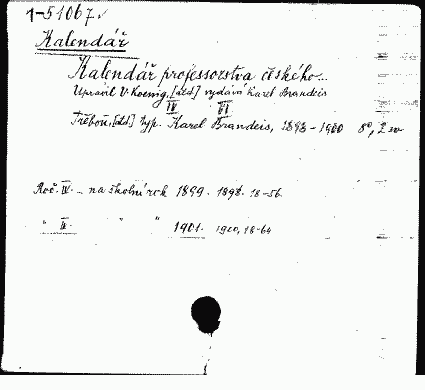 1-51067.
Kalendář
Kalendář professorstva českého...
Upravil V. Koenig, [atd] vydává Karel Brandeis
IV VI
Třeboň, [atd] typ. Karel Brandeis, 1898-1900 8°, 2 sv
Roč. IV. - na školní rok 1899. 1898. 18-56.
" " " 1901. 1900, 18-64